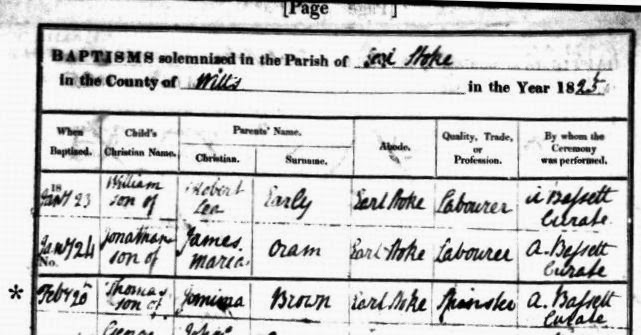 [Page ]
BAPTISMS solemnized in the Parish of Earl Stoke
in the County of Wilts in the Year 1825
When Baptized. Child's Christian Name. Parents' Name. Christian. Surname. Abode. Quality, Trade, or Profession. By whom the Ceremony was performed.
18
Jany 23 William son of Robert Lea Early Earl Stoke Labourer A Bassett Curate
Jany 24 Jonathan son of James Maria Oram Earl Stoke Labourer A. Bassett Curate
No.
* Feby 20 Thomas son of Jemima Brown Earl Stoke Spinster A. Bassett Curate
George John